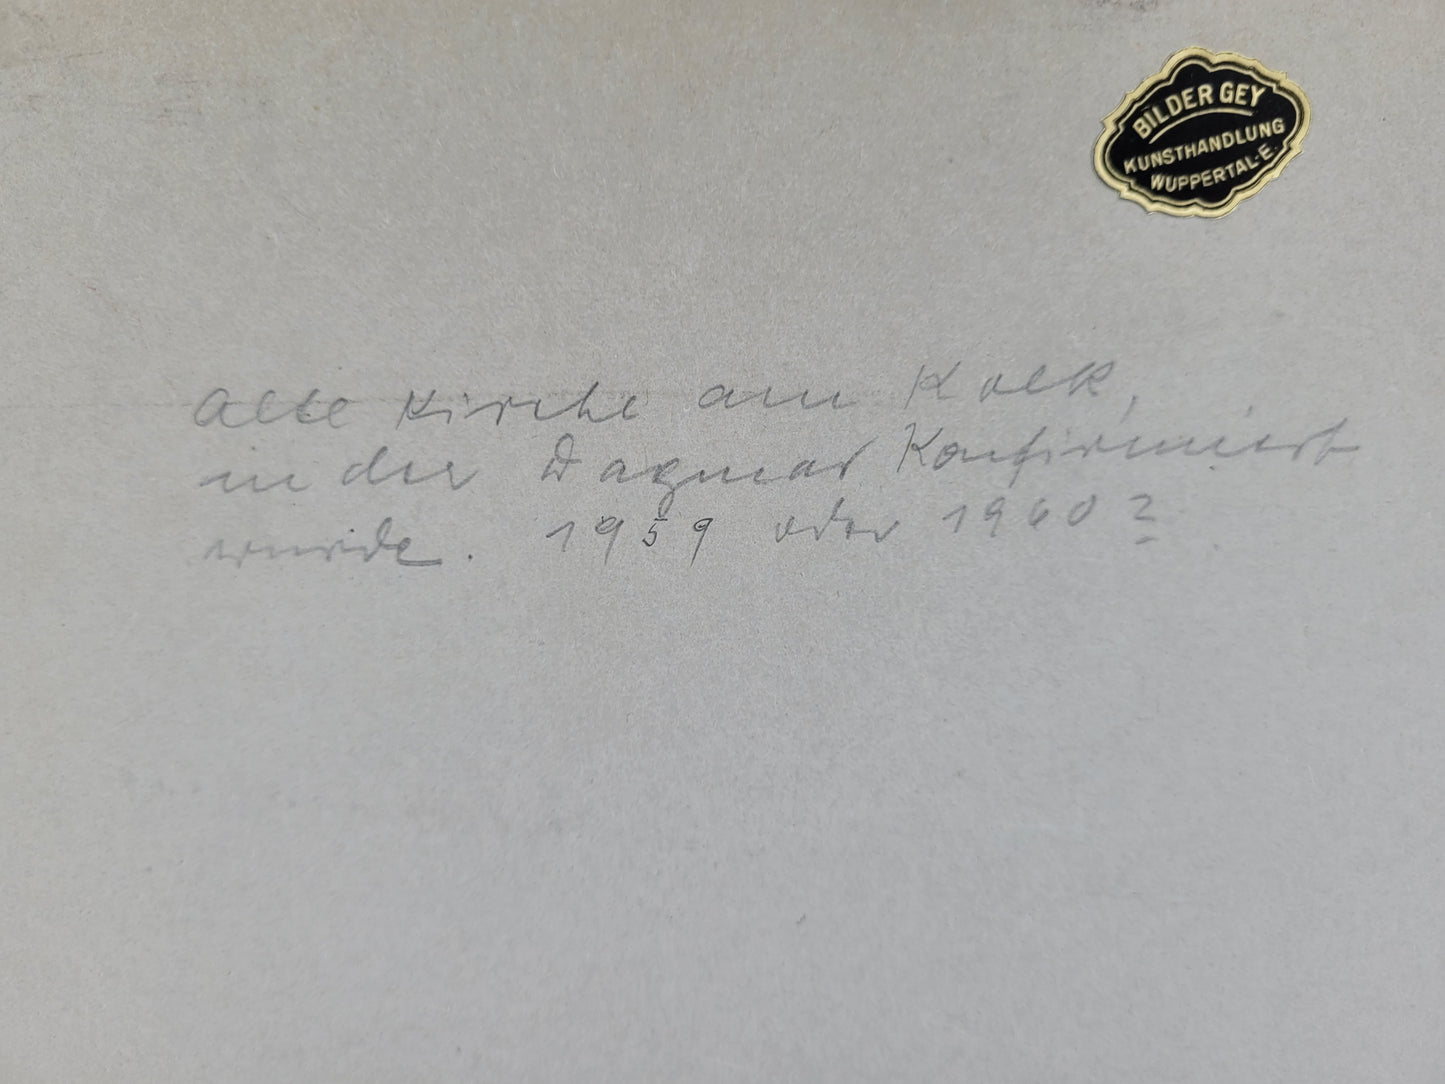 BILDER GEY
KUNSTHANDLUNG
WUPPERTAL-E.
Alte Kirche am Kolk,
in der Dagmar Konfirmiert
wurde. 1959 oder 1960?